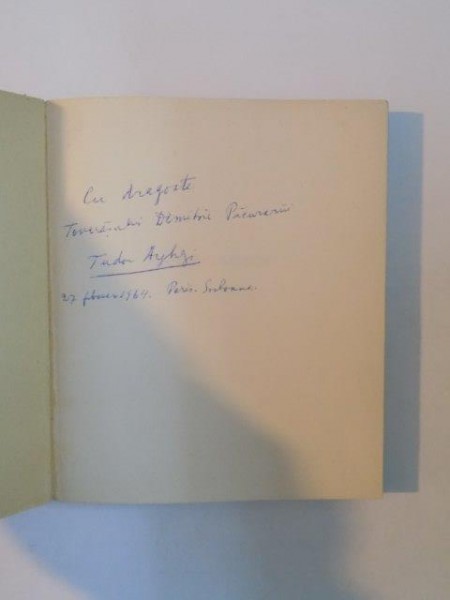 Cu dragoste
Tovarășului Dimitrie Păcurariu
Tudor Arghezi
27 1964. Paris. Sorbona.